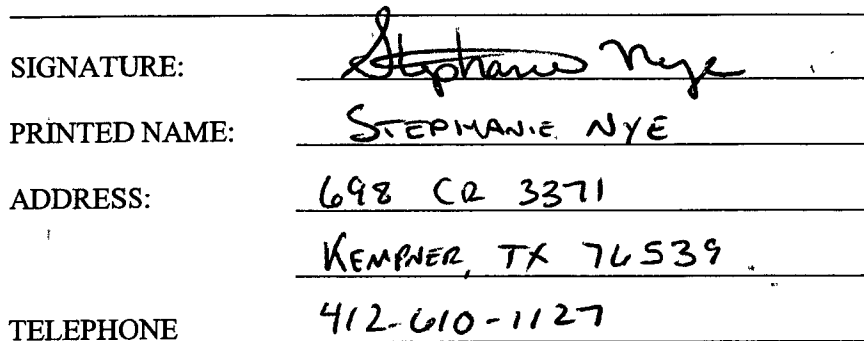 SIGNATURE: Stephanie Nye
PRINTED NAME: STEPHANIE NYE
ADDRESS: 698 CR 3371
KEMPNER, TX 76539
TELEPHONE 412-610-1127